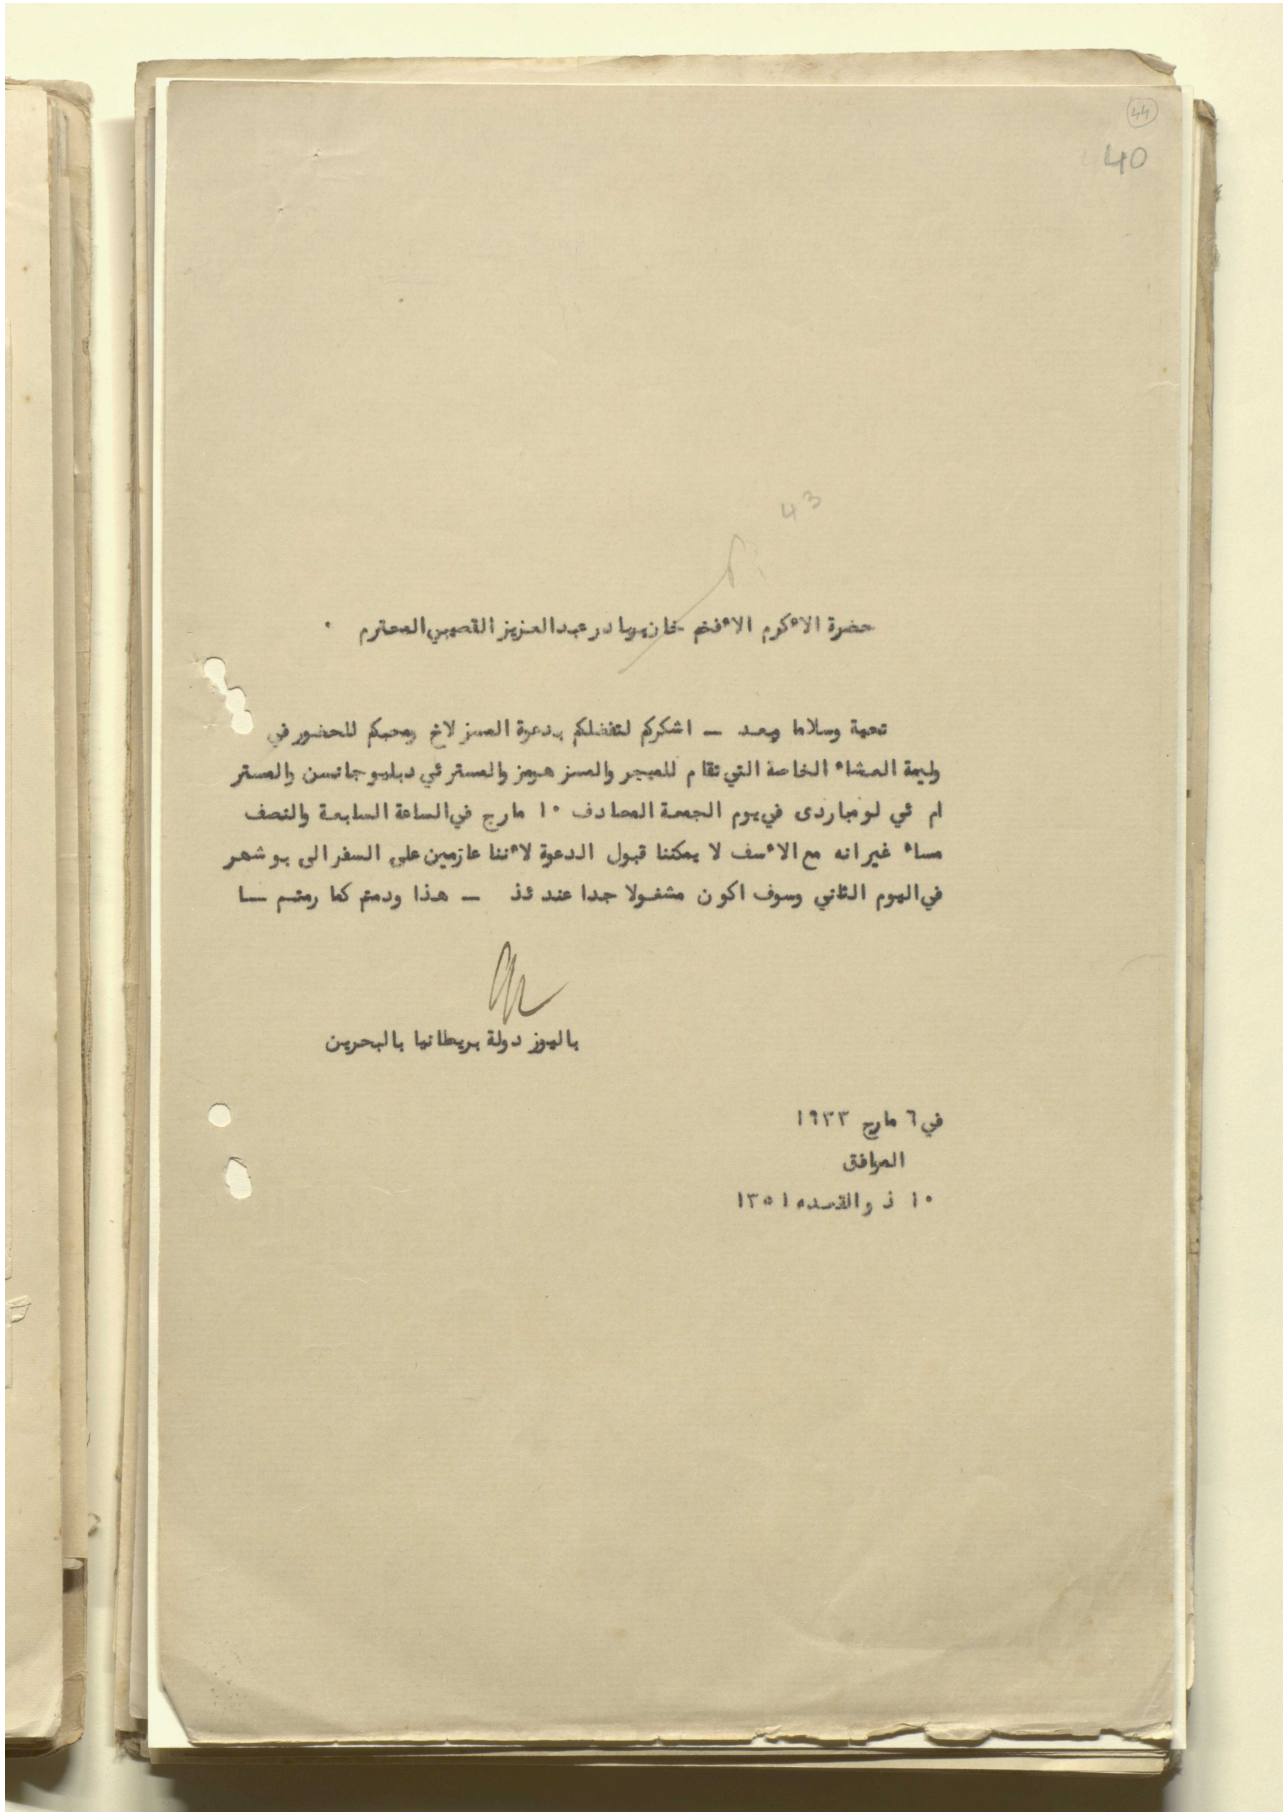 44
40
43
حضرة الاكرم الافخم خان بهادر عبدالعزيز القصيبي المحترم .
تحية وسلاما وبعد — اشكركم لتفضلكم بدعوة المسز لاخ ومحبكم للحضور في
وليمة العشاء الخاصة التي تقام للميجر والمسز هومز والمستر ئي دبليو جانسن والمستر
ام ئي لومباردى في يوم الجمعة المصادف ١٠ مارچ في الساعة السابعة والنصف
مساء غير انه مع الاسف لا يمكننا قبول الدعوة لاننا عازمين على السفر الى بوشهر
في اليوم الثاني وسوف اكون مشغولا جدا عند ئذ — هذا ودمتم كما رمتم ســا
باليوز دولة بريطانيا بالبحرين
في ٦ مارچ ١٩٣٣
الموافق
١٠ ذوالقعده ١٣٥١